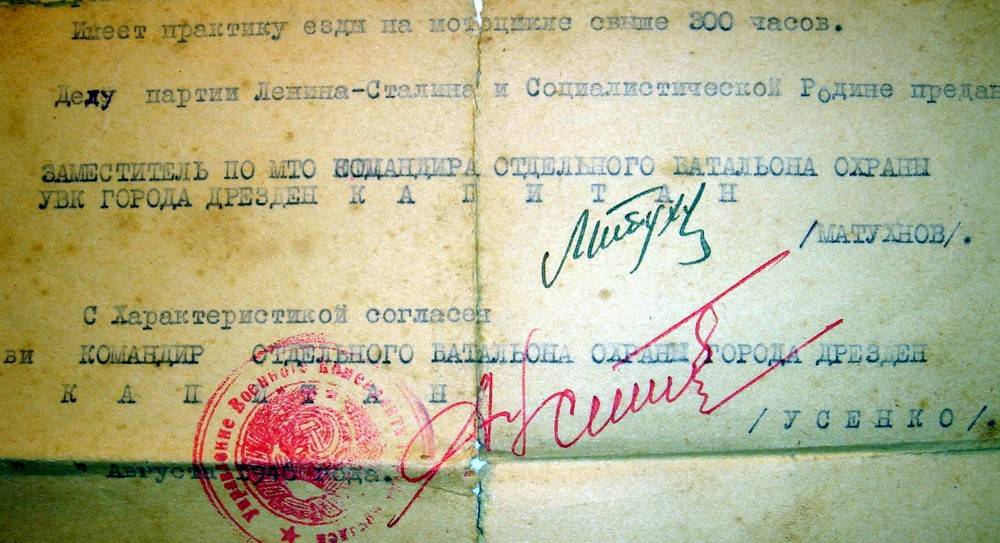 Имеет практику езды на мотоцикле свыше 300 часов.
Делу партии Ленина-Сталина и Социалистической Родине предан
ЗАМЕСТИТЕЛЬ ПО МТО КОМАНДИРА ОТДЕЛЬНОГО БАТАЛЬОНА ОХРАНЫ
УВК ГОРОДА ДРЕЗДЕН К А П И Т А Н
/МАТУХНОВ/.
С Характеристикой согласен
ви КОМАНДИР ОТДЕЛЬНОГО БАТАЛЬОНА ОХРАНЫ ГОРОДА ДРЕЗДЕН
К А П И Т А Н
/У С Е Н К О/.
" " Августа года.
Управление Военного